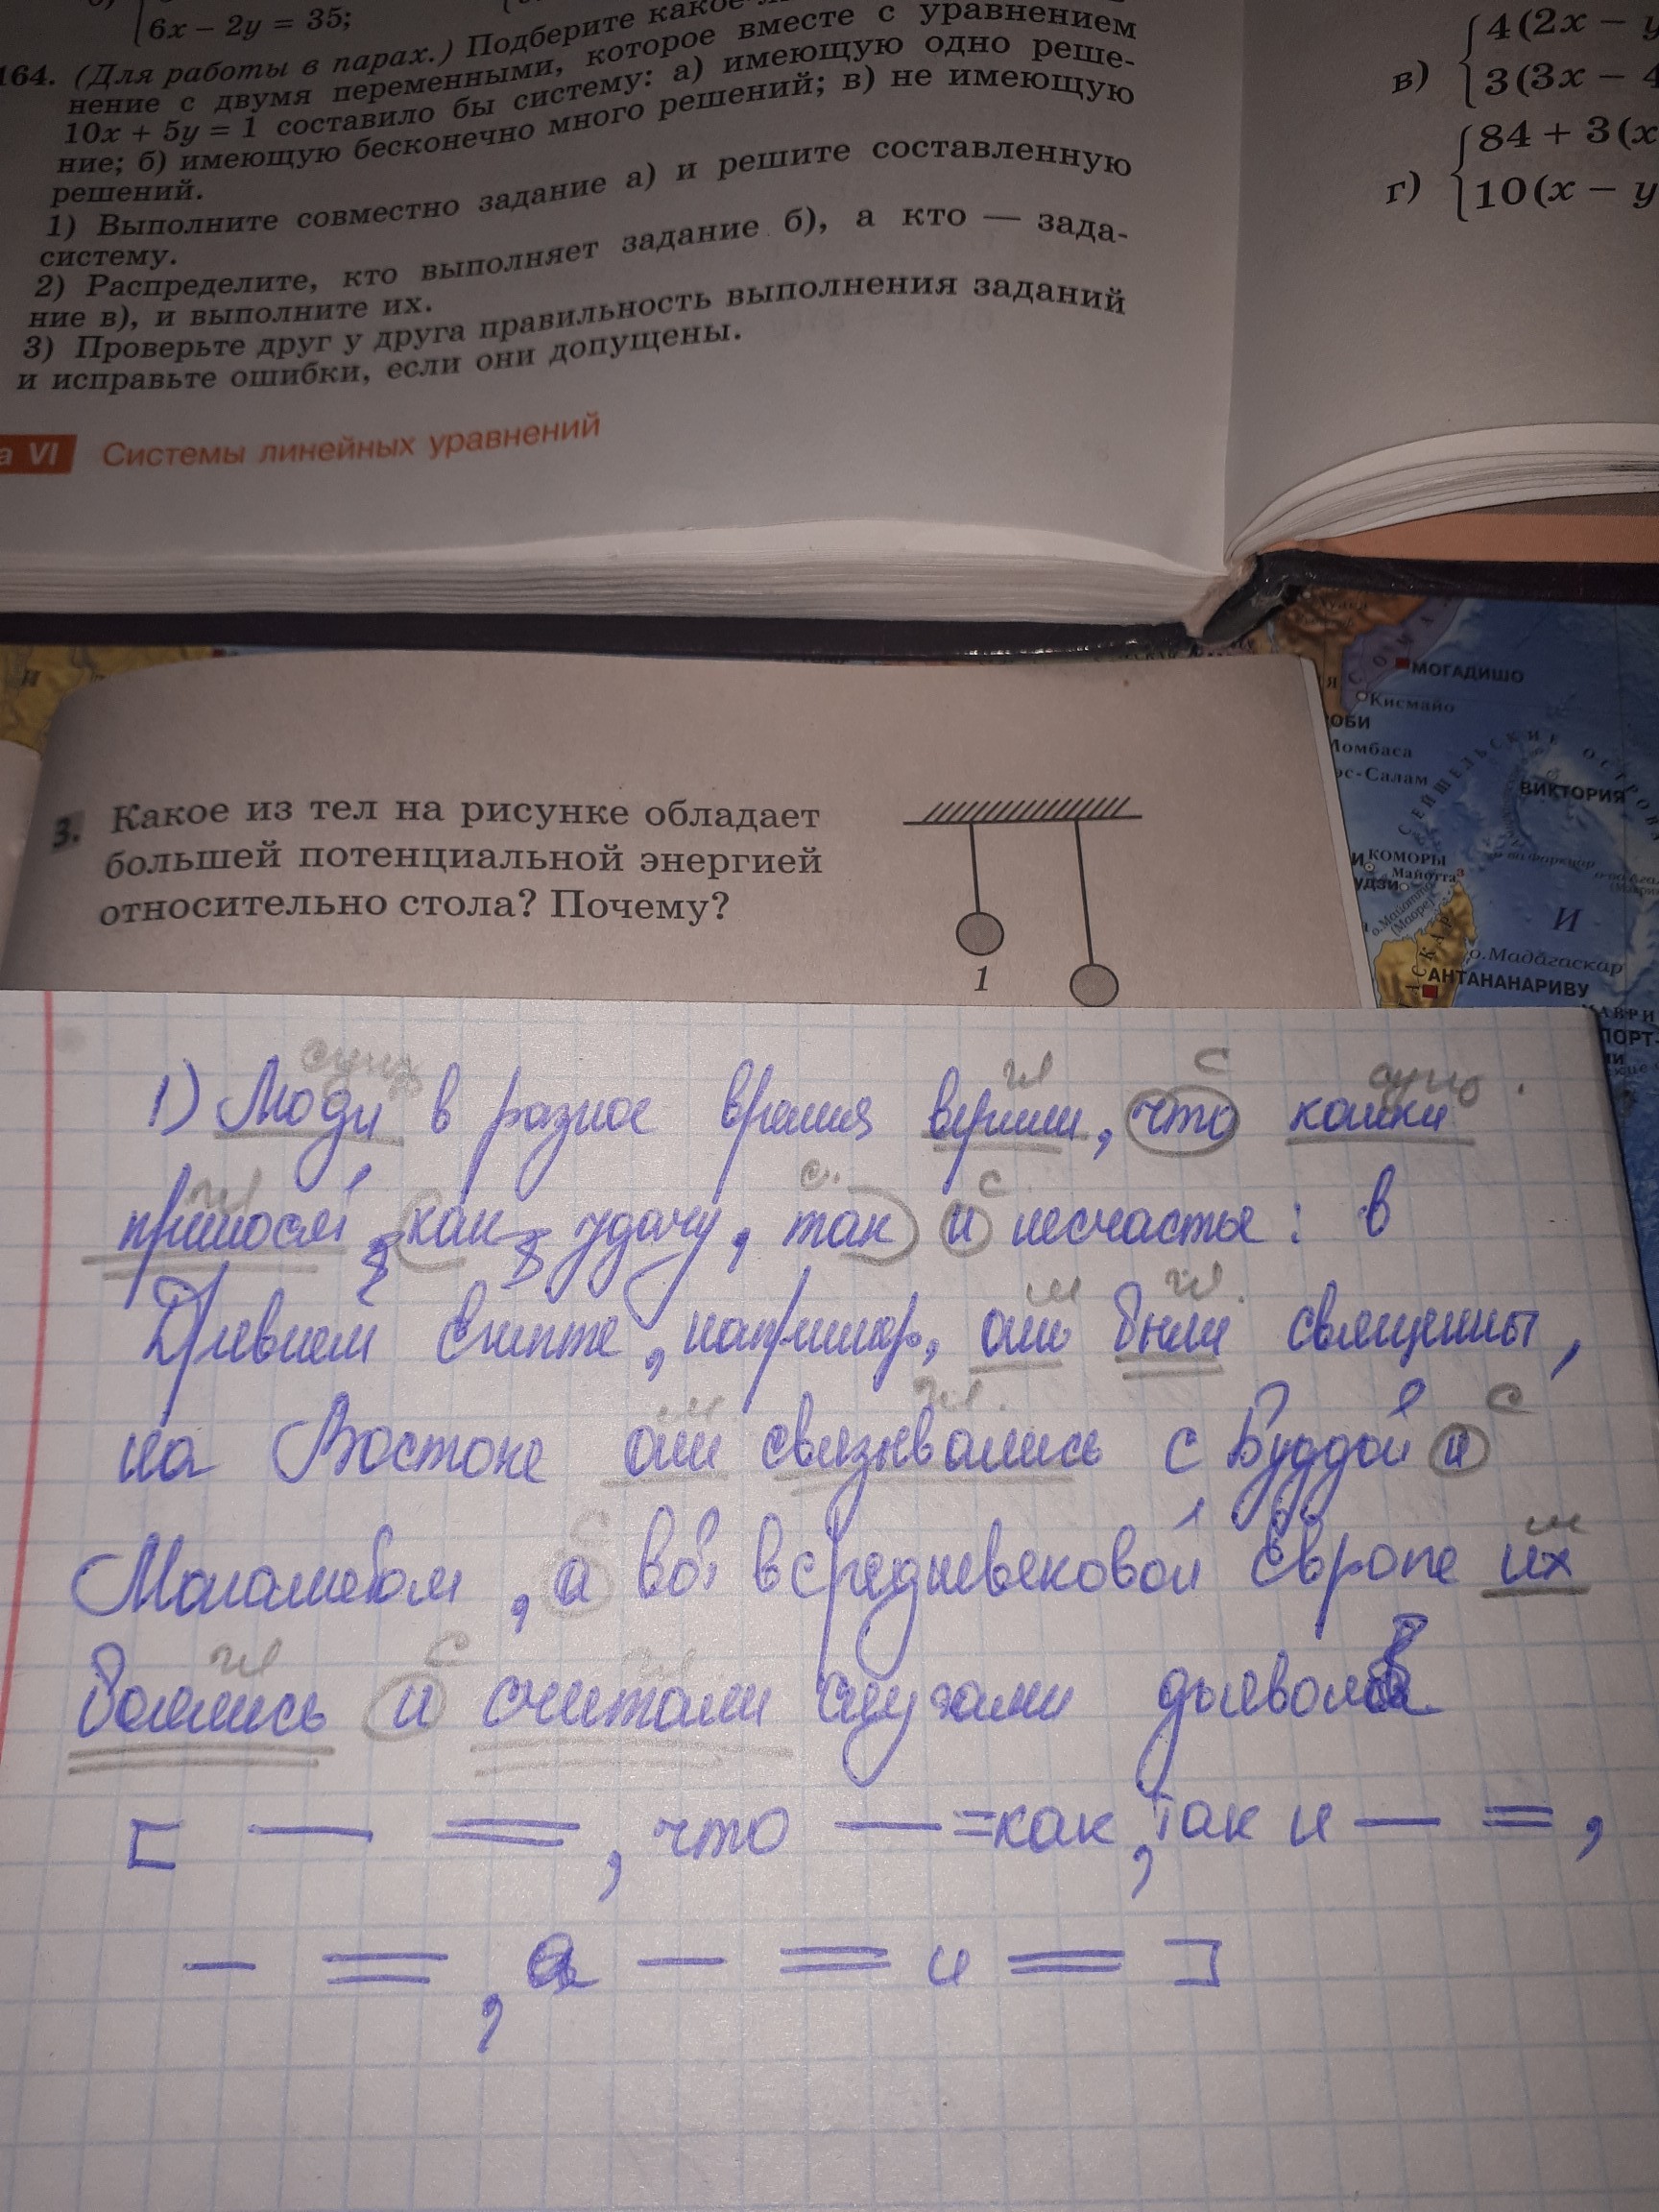 6x − 2y = 35;
164. (Для работы в парах.) Подберите какое-
нение с двумя переменными, которое вместе с уравнением
10x + 5y = 1 составило бы систему: а) имеющую одно реше-
ние; б) имеющую бесконечно много решений; в) не имеющую
решений.
1) Выполните совместно задание а) и решите составленную
систему.
2) Распределите, кто выполняет задание б), а кто — зада-
ние в), и выполните их.
3) Проверьте друг у друга правильность выполнения заданий
и исправьте ошибки, если они допущены.
а VI Системы линейных уравнений
4(2x − y
в)
3(3x − 4
84 + 3(x
г)
10(x − y
СОМА
МОГАДИШО
Кисмайо
ОБИ
Момбаса
эс-Салам
СЕЙШЕЛЬСКИЕ ОСТРОВА
ВИКТОРИЯ
КОМОРЫ
Майотта
о.Майотта
(Маоре)
И
о.Мадагаскар
АНТАНАНАРИВУ
МАВРИ
ПОРТ-
3. Какое из тел на рисунке обладает
большей потенциальной энергией
относительно стола? Почему?
1
сущ гл с сущ
1) Люди в разное время верили, что кошки
гл с. с
приносят как удачу, так и несчастье: в
м гл.
Древнем Египте, например, они были священны,
м. гл. с
на Востоке они связывались с Буддой и
с м
Магометом, а вот в средневековой Европе их
гл с гл
боялись и считали слугами дьявола
[ — =, что — = как, так и — =,
— =, а — = и = ]